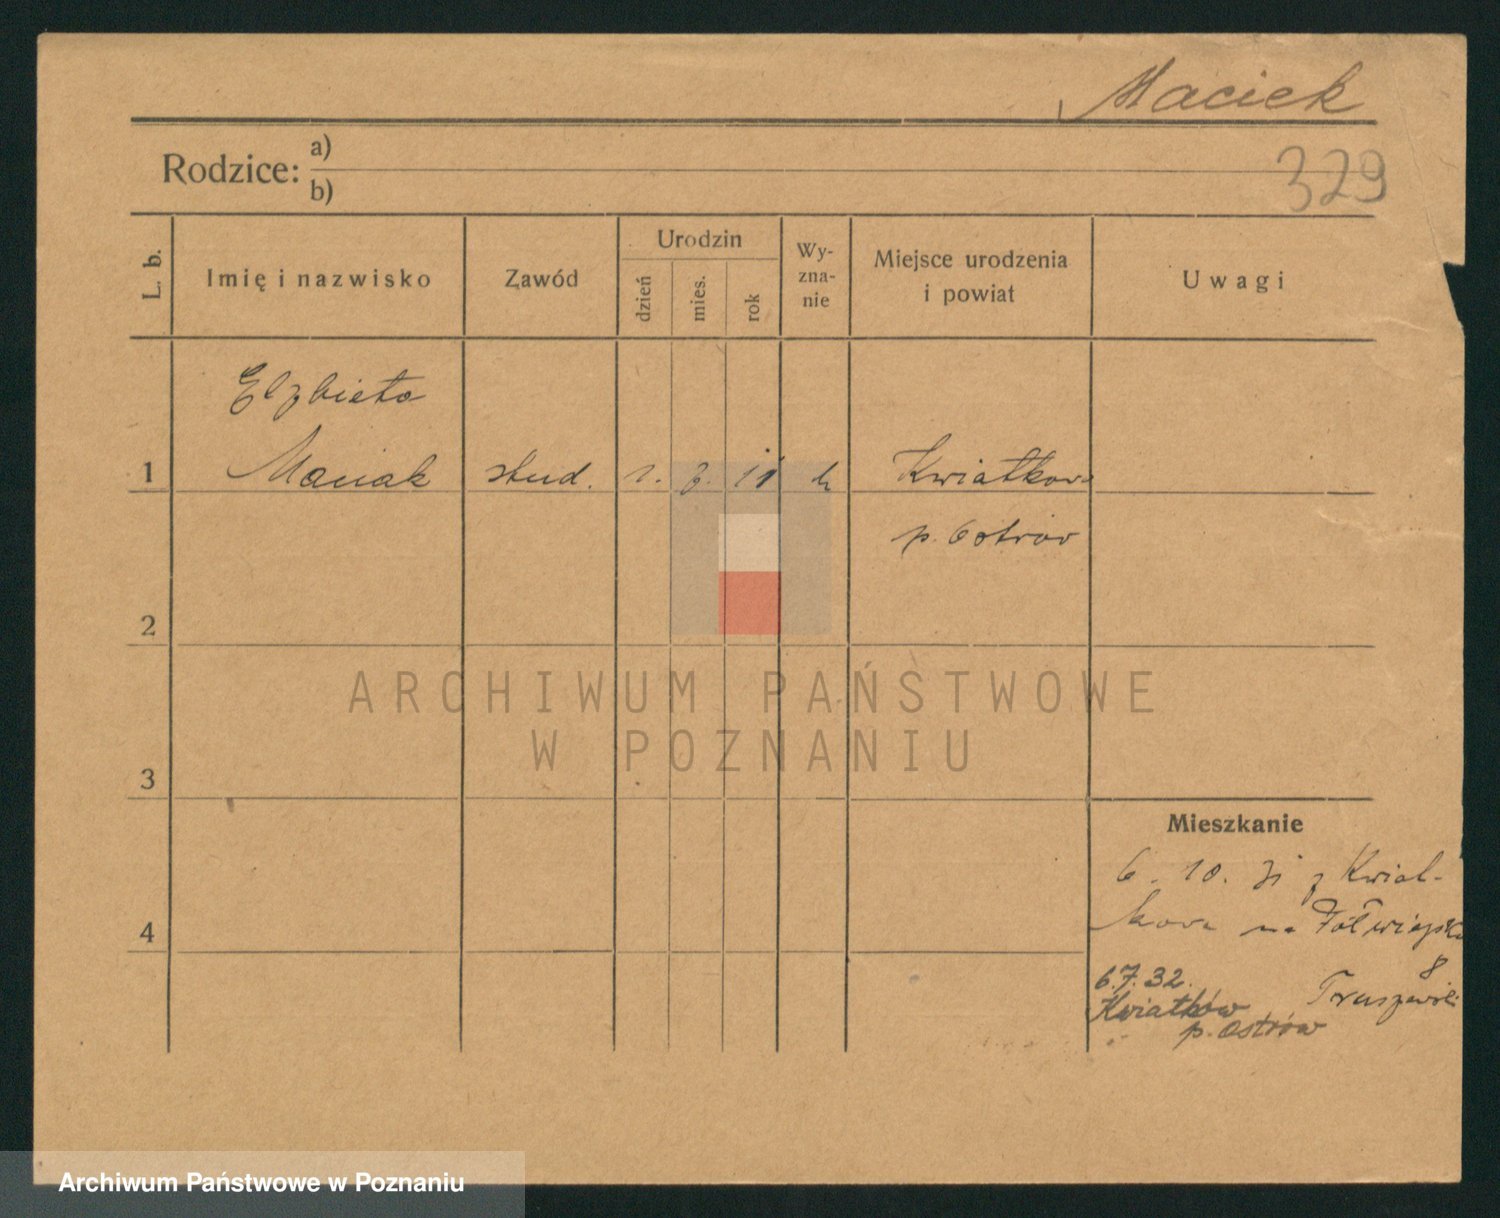 Maciek
329
Rodzice: a)
b)
L. b.
Imię i nazwisko
Zawód
Urodzin
dzień
mies.
rok
Wy-
zna-
nie
Miejsce urodzenia
i powiat
Uwagi
Elzbieta
1 Maciak stud. 1. 3. 11 k Kwiatkow
p. Ostrów
2
ARCHIWUM PAŃSTWOWE
W POZNANIU
3
Mieszkanie
6. 10. 31 z Kwiat-
kowa na Półwiejska
4
8
6.7.32.
Kwiatków
p. Ostrów
Archiwum Państwowe w Poznaniu